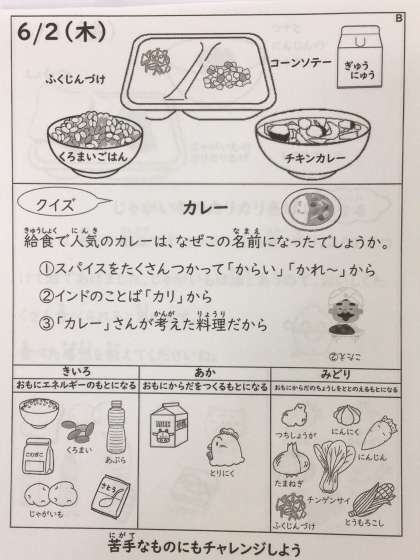 B
6/2(木)
ふくじんづけ
コーンソテー
ぎゅう
にゅう
くろまいごはん
チキンカレー
クイズ
カレー
給食で人気のカレーは、なぜこの名前になったでしょうか。
①スパイスをたくさんつかって「からい」「かれ～」から
②インドのことば「カリ」から
③「カレー」さんが考えた料理だから
きいろ
あか
みどり
おもにエネルギーのもとになる
おもにからだをつくるもとになる
おもにからだのちょうしをととのえるもとになる
こむぎこ
くろまい
あぶら
じゃがいも
さとう
とりにく
つちしょうが
にんにく
にんじん
たまねぎ
チンゲンサイ
ふくじんづけ
とうもろこし
苦手なものにもチャレンジしよう